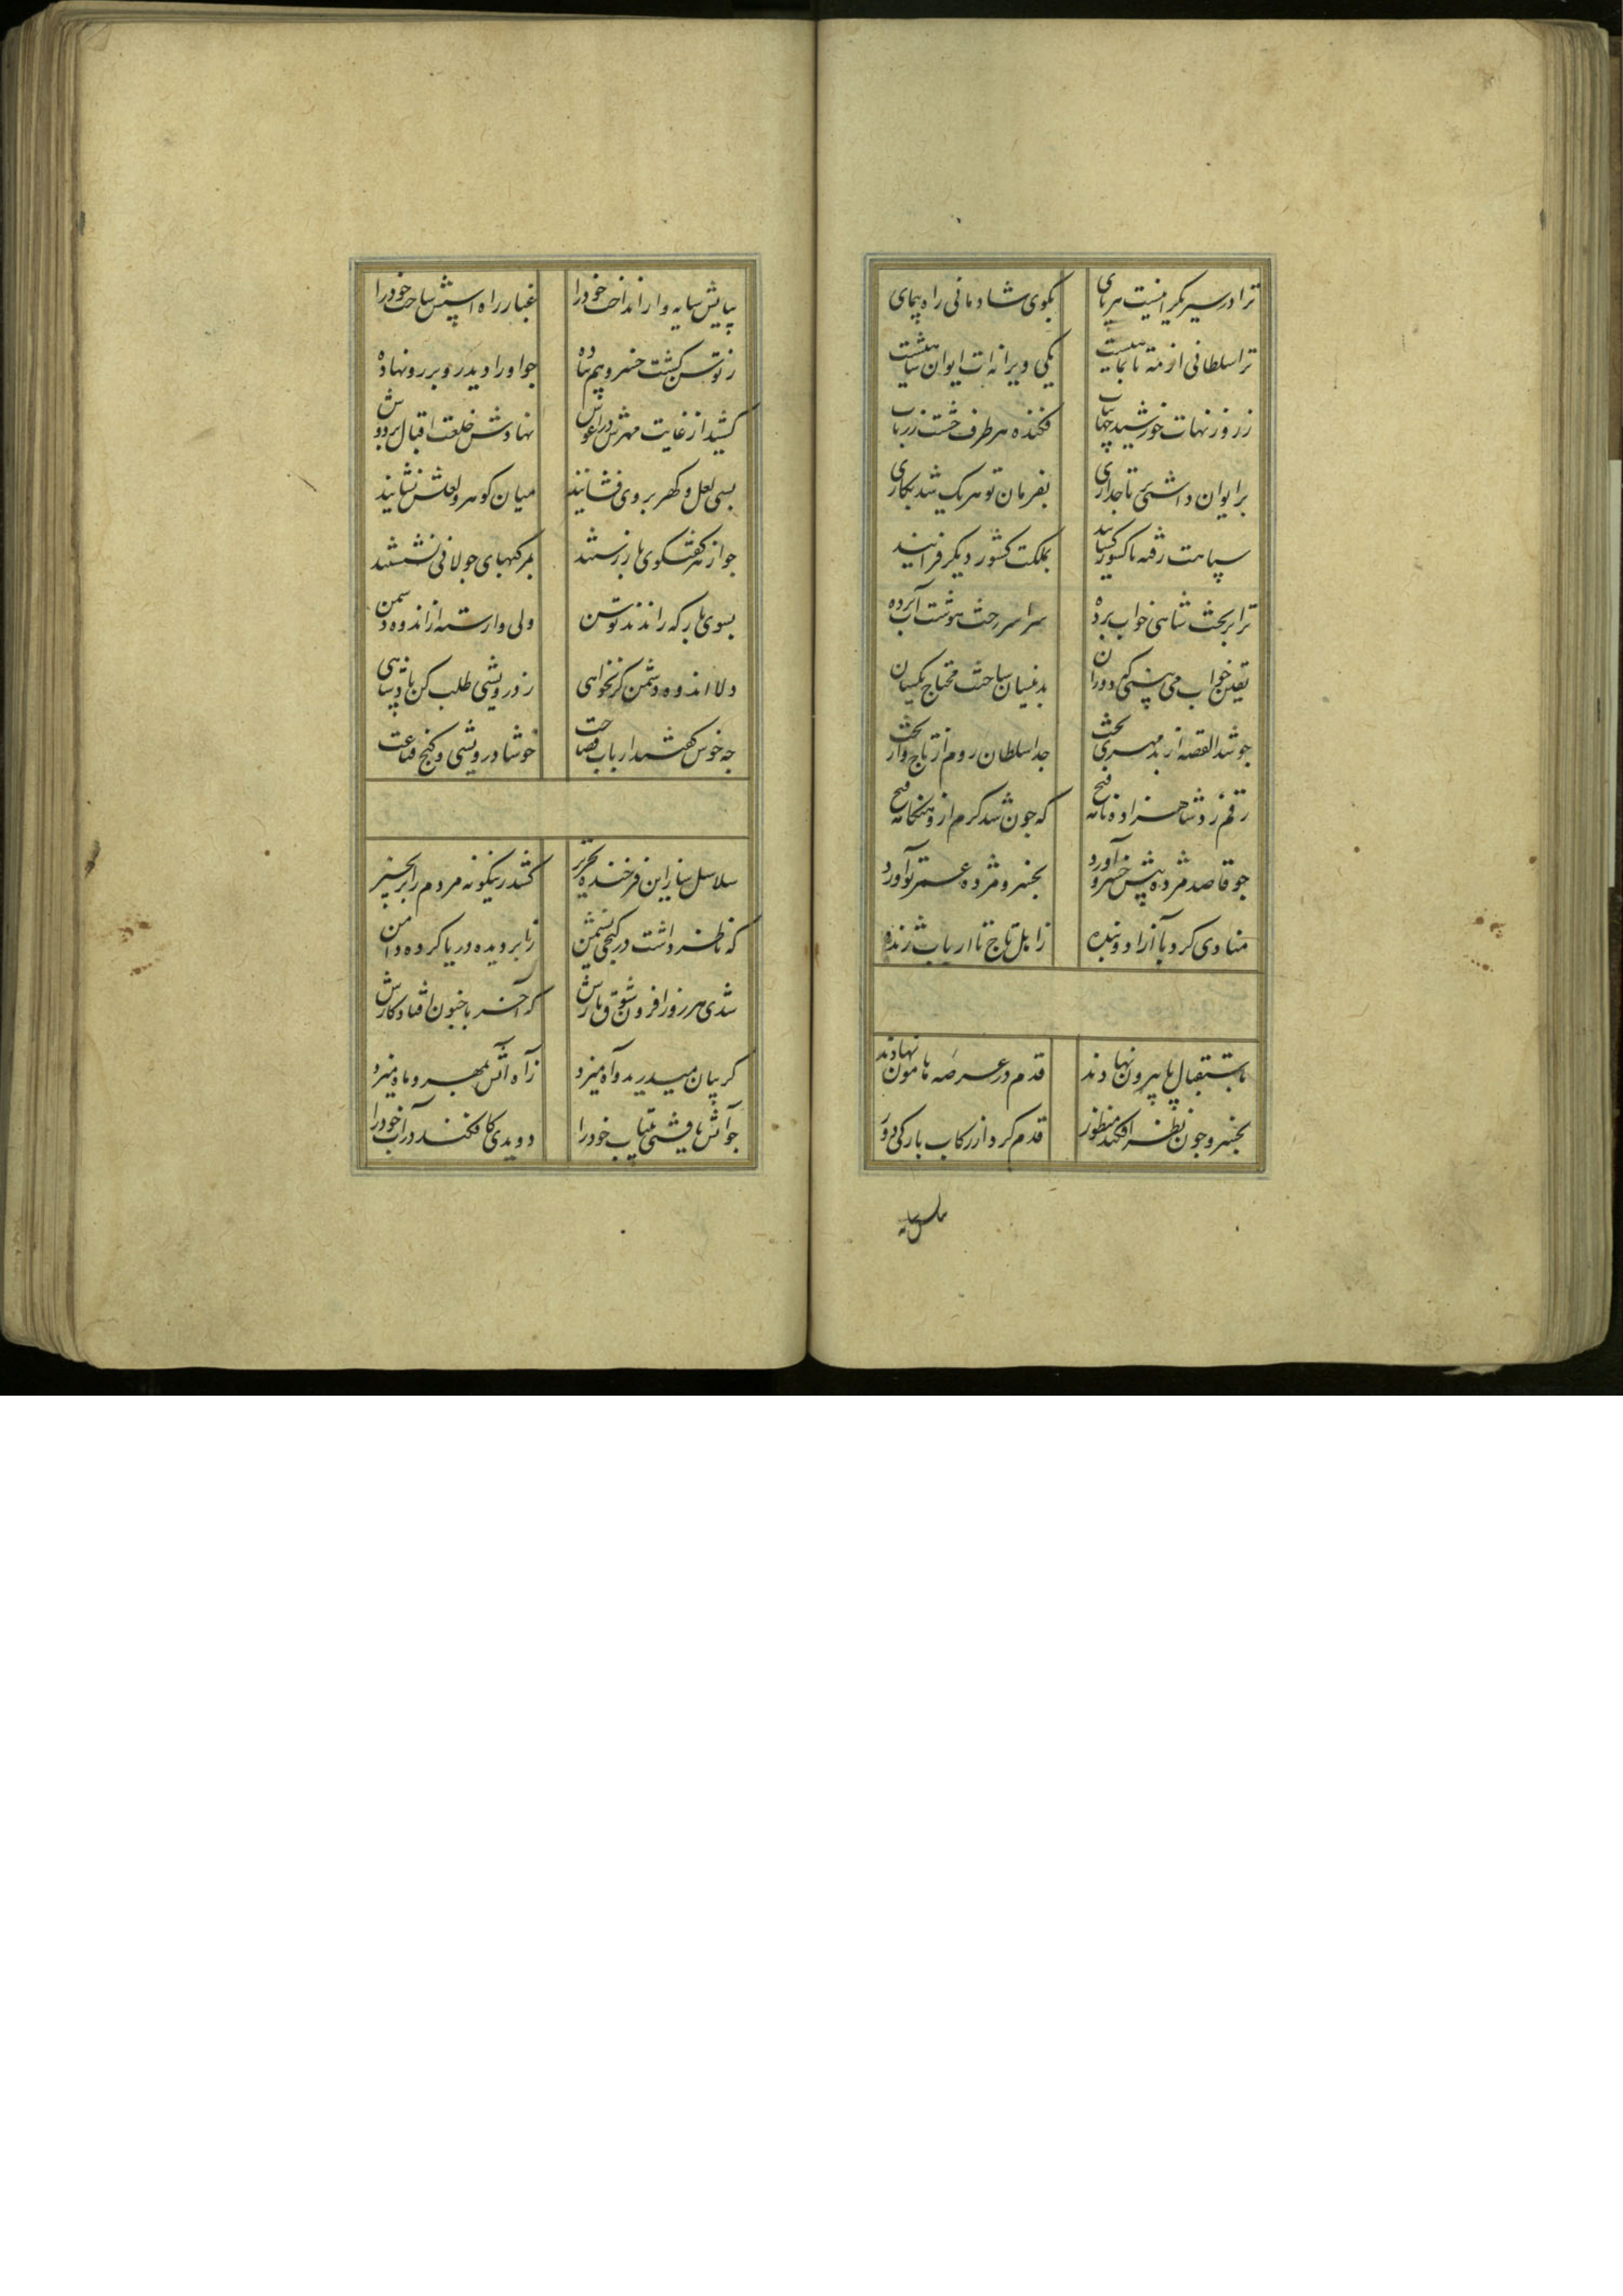 ترا در سیر یکرانیست بر پای بکوی شادمانی راه پیمای
ترا سلطانی از مه تا بماهیست یکی ویرانه ات ایوان شاهیست
فکنده هر طرف خشت زر ناب
بر ایوان داشتی تاجداری بفرمان تو هر یک شد بکاری
سپاهت رفته تا کشور بملکت کشور دیکر فزایند
ترا بر تخت شاهی خواب برده سراسر رخت هوشت آب برده
یقین خواب می بینی که دوران بدینسان ساخت محتاج یکسان
چو شد القصه از بدمهری بخت جدا سلطان روم از تاج و از تخت
رقم زد شاهزاده نامه فتح که چون شد کرم ازو هنکامه فتح
چو قاصد مژده پیش خسرو آورد بخسرو مژده عمر نو آورد
منادی کرد با آزاد و بنده ز اهل تاج تا ارباب ژنده
باستقبال پا بیرون نهادند قدم در عرصه هامون نهادند
بخسرو چون نظر افکند منظور قدم کرد از رکاب بارکی دور
بپایش سایه وار انداخت خود را غبار راه اسپش ساخت خود را
ز توسن کشت خسرو هم پیاده چو او را دید رو بر رو نهاده
کشید از غایت مهرش در آغوش نهادش خلعت اقبال بر دوش
بسی لعل و کهر بر وی فشاندند میان کوهر و لعلش نشاندند
چو از هر کفتکوی باز رستند بمرکبهای جولانی نشستند
بسوی بارکه راندند توسن ولی وارسته از اندوه دشمن
دلا اندوه دشمن کر نخواهی ز درویشی طلب کن پادشاهی
چه خوش کفتند ارباب فصاحت خوشا درویشی و کنج قناعت
سلاسل ساز این فرخنده تحریر کشد زینکونه مردم را بزنجیر
که ناظر داشت در کنجی نشیمن ز ابر دیده دریا کرده دامن
شدی هر روز افزون شوق یارش که آخر با جنون افتاد کارش
کریبان میدرید و آه میزد ز آه آتش بمهر و ماه میزد
چو آتش یافتی بیتاب خود را دویدی کافکند در آب خود را